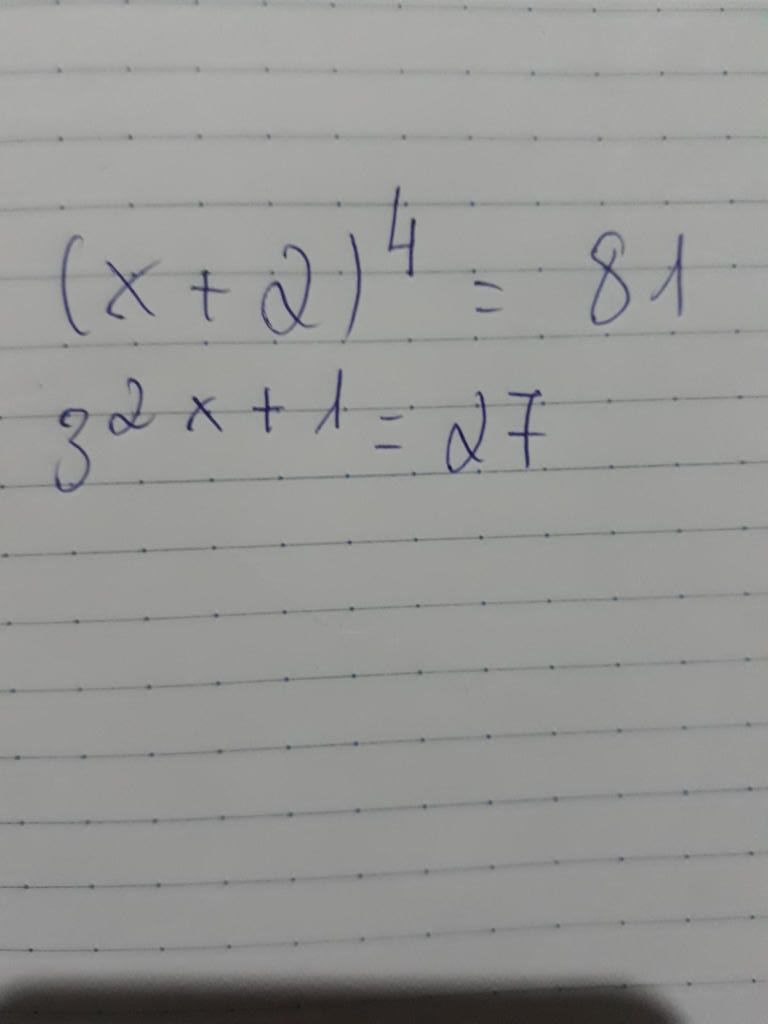 (x + 2)⁴ = 81
3²ˣ⁺¹ = 27